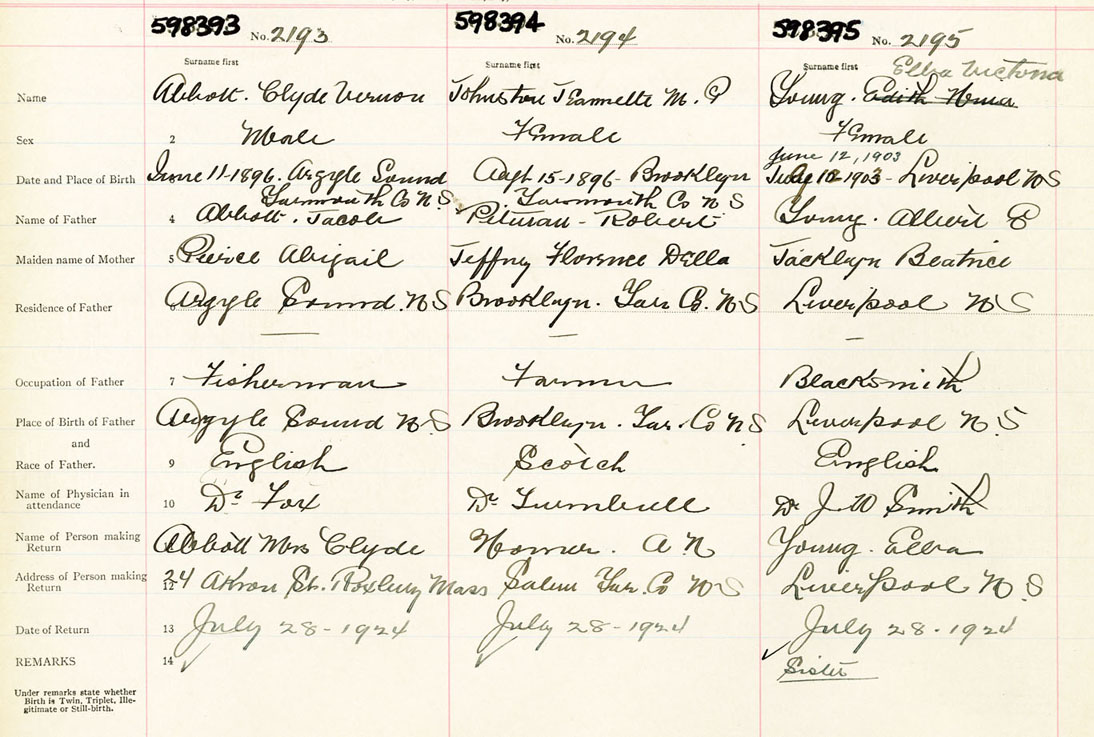 598393 No. 2193 598394 No. 2194 598395 No. 2195
Surname first Surname first Surname first Elba Victoria
Name Abbott. Clyde Vernon Johnston Jeannette M. P Young. Edith
Sex 2 Male Female Female
June 12, 1903
Date and Place of Birth June 11-1896. Argyle Sound Augt 15-1896- Brooklyn 1903- Liverpool NS
Yarmouth Co N.S Yarmouth Co N S
Name of Father 4 Abbott. Jacob Pitman - Robert Young. Albert E
Maiden name of Mother 5 Pierce Abigail Jeffrey Florence Della Jacklyn Beatrice
Residence of Father 6 Argyle Sound. NS Brooklyn. Yar Co. NS Liverpool NS
Occupation of Father 7 Fisherman Farmer Blacksmith
Place of Birth of Father Argyle Sound N.S Brooklyn. Yar. Co NS Liverpool N S
and
Race of Father. 9 English Scotch English
Name of Physician in attendance 10 Dr Fox Dr Turnbull Dr J. W Smith
Name of Person making Return Abbott Mrs Clyde Homer. A N Young. Elba
Address of Person making Return 12 24 Akron St. Roxbury Mass Salem Yar. Co NS Liverpool N.S
Date of Return 13 July 28-1924 July 28-1924 July 28-1924
REMARKS 14 Sister
Under remarks state whether
Birth is Twin, Triplet, Ille-
gitimate or Still-birth.